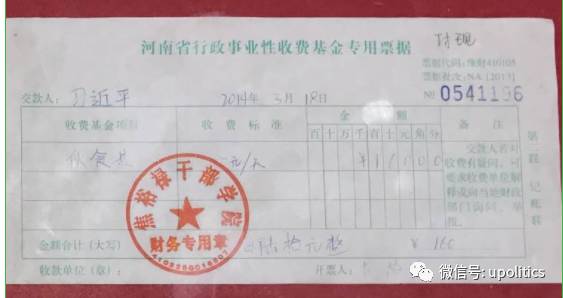 河南省行政事业性收费基金专用票据
付现
票据代码:豫财410105
票据批次:NA[2013]
交款人: 习近平 2014年3月18日 № 0541196
收费基金项目 收费标准 金额 备注
百十万千百十元角分
伙食费 元/天 ¥16000
交款人若对收费有疑问,可要求收费单位解释或向当地财政部门询问、举报。
第二联 记账联
焦裕禄干部学院
财务专用章
4102250016807
金额合计(大写) 陆拾元整 ¥ 160
收款单位(章): 开票人:
微信号: upolitics